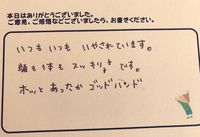 本日はありがとうございました。
ご意見、ご感想などございましたら、お書きください。
いつも いつも いやされています。
顔も体も スッキリ です。
ホッと あったか ゴッドハンド